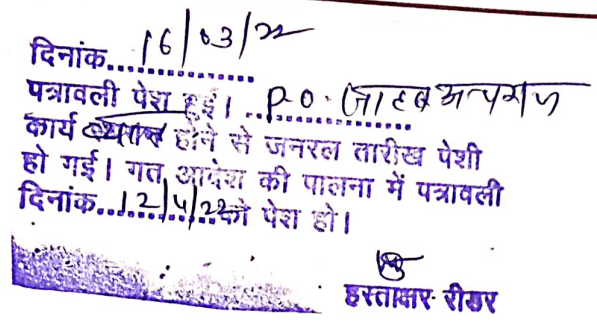 दिनांक....16/03/22
पत्रावली पेश हुई। ..P.O. साहब अन्य राज
कार्य व्यस्त होने से जनरल तारीख पेशी
हो गई। गत आदेश की पालना में पत्रावली
दिनांक....12/4/22को पेश हो।
हस्ताक्षर रीडर